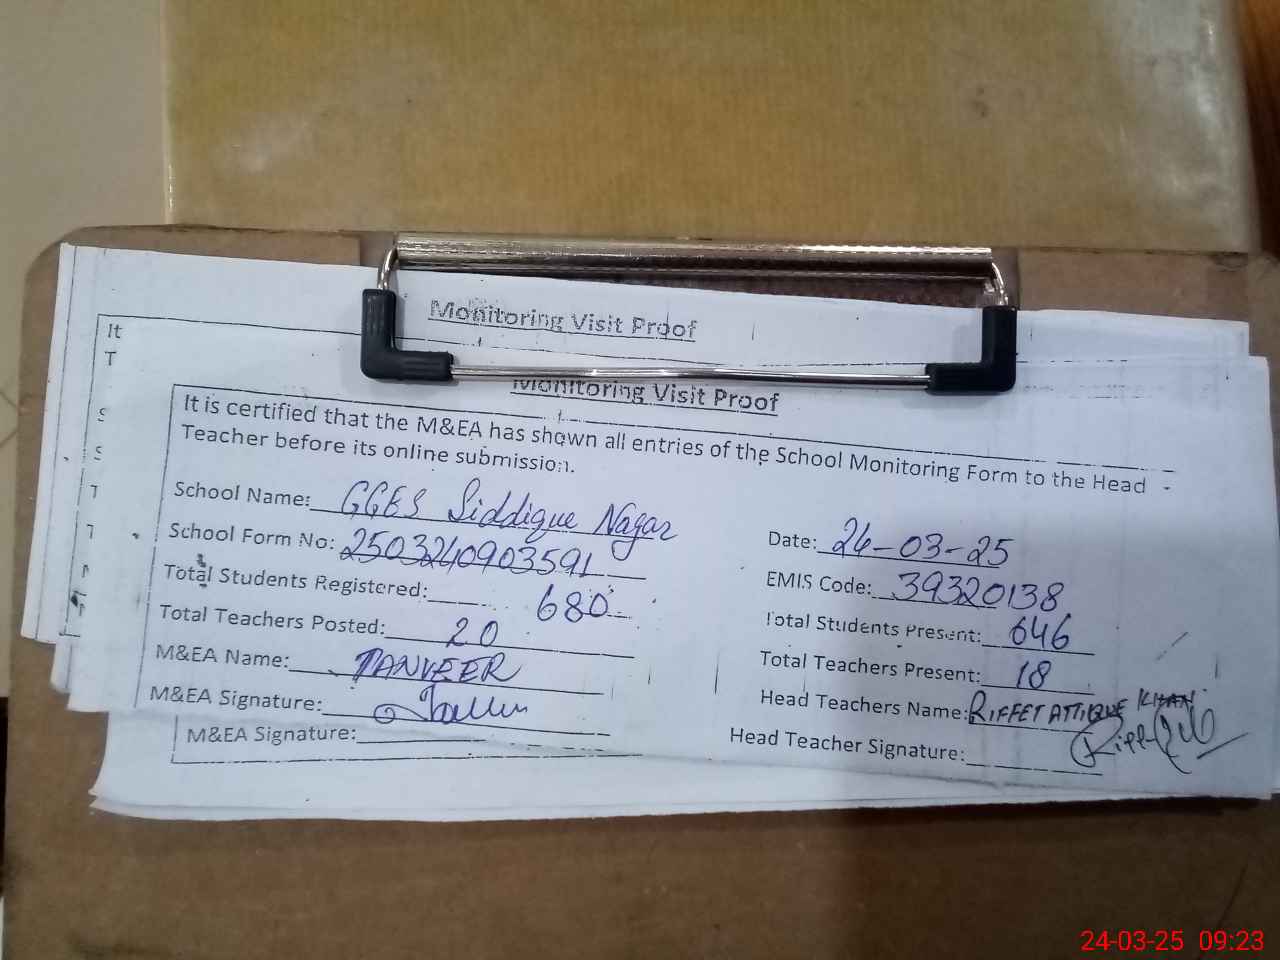 Monitoring Visit Proof
It
T
S
S
T
T
Monitoring Visit Proof
It is certified that the M&EA has shown all entries of the School Monitoring Form to the Head
Teacher before its online submission.
School Name: GGES Siddique Nagar
Date: 24-03-25
School Form No: 2503240903591
EMIS Code: 39320138
Total Students Registered: 680
Total Students Present: 646
Total Teachers Posted: 20
Total Teachers Present: 18
M&EA Name: TANVEER
Head Teachers Name: RIFFET ATTIQUE KHAN
M&EA Signature:
Head Teacher Signature:
M&EA Signature:
24-03-25 09:23